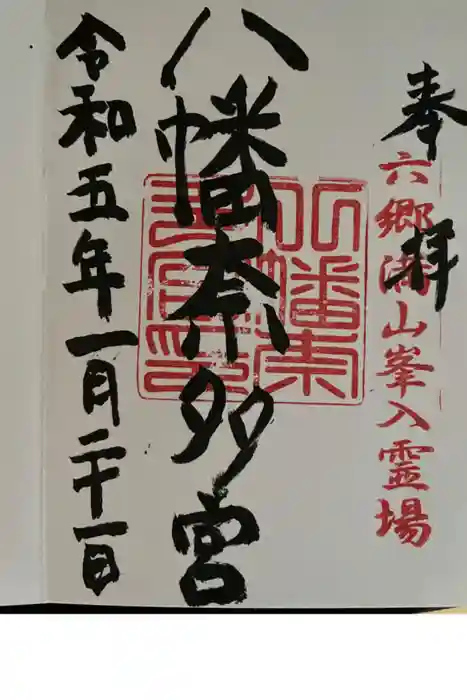 奉拝
六郷満山峯入霊場
八幡奈多宮
八幡奈多宮印
令和五年一月二十一日